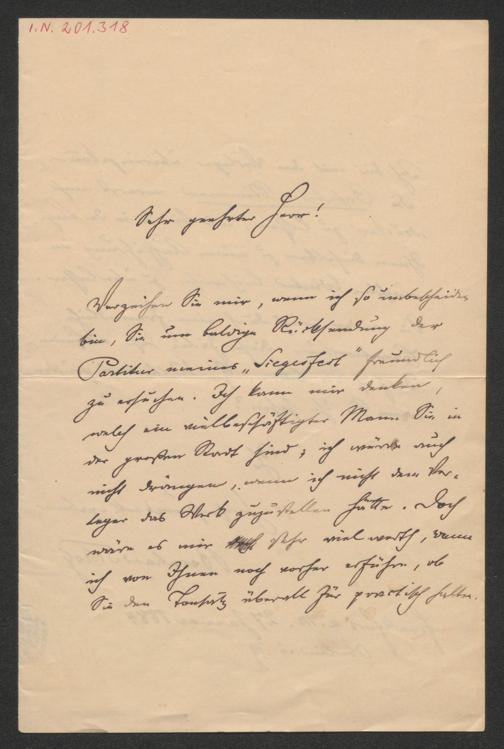 I.N. 201.318
Sehr geehrter Herr!
Verzeihen Sie mir, wenn ich so unbescheiden
bin, Sie um baldige Rücksendung der
Partitur meines „Siegesfest" freundlich
zu ersuchen. Ich kann mir denken,
welch ein vielbeschäftigter Mann Sie in
der großen Stadt sind; ich würde auch
nicht drängen, wenn ich nicht dem Ver-
leger das Werk zuzustellen hätte. Doch
wäre es mir sehr viel werth, wenn
ich von Ihnen noch vorher erführe, ob
Sie den Tonsatz überall für practisch halten.